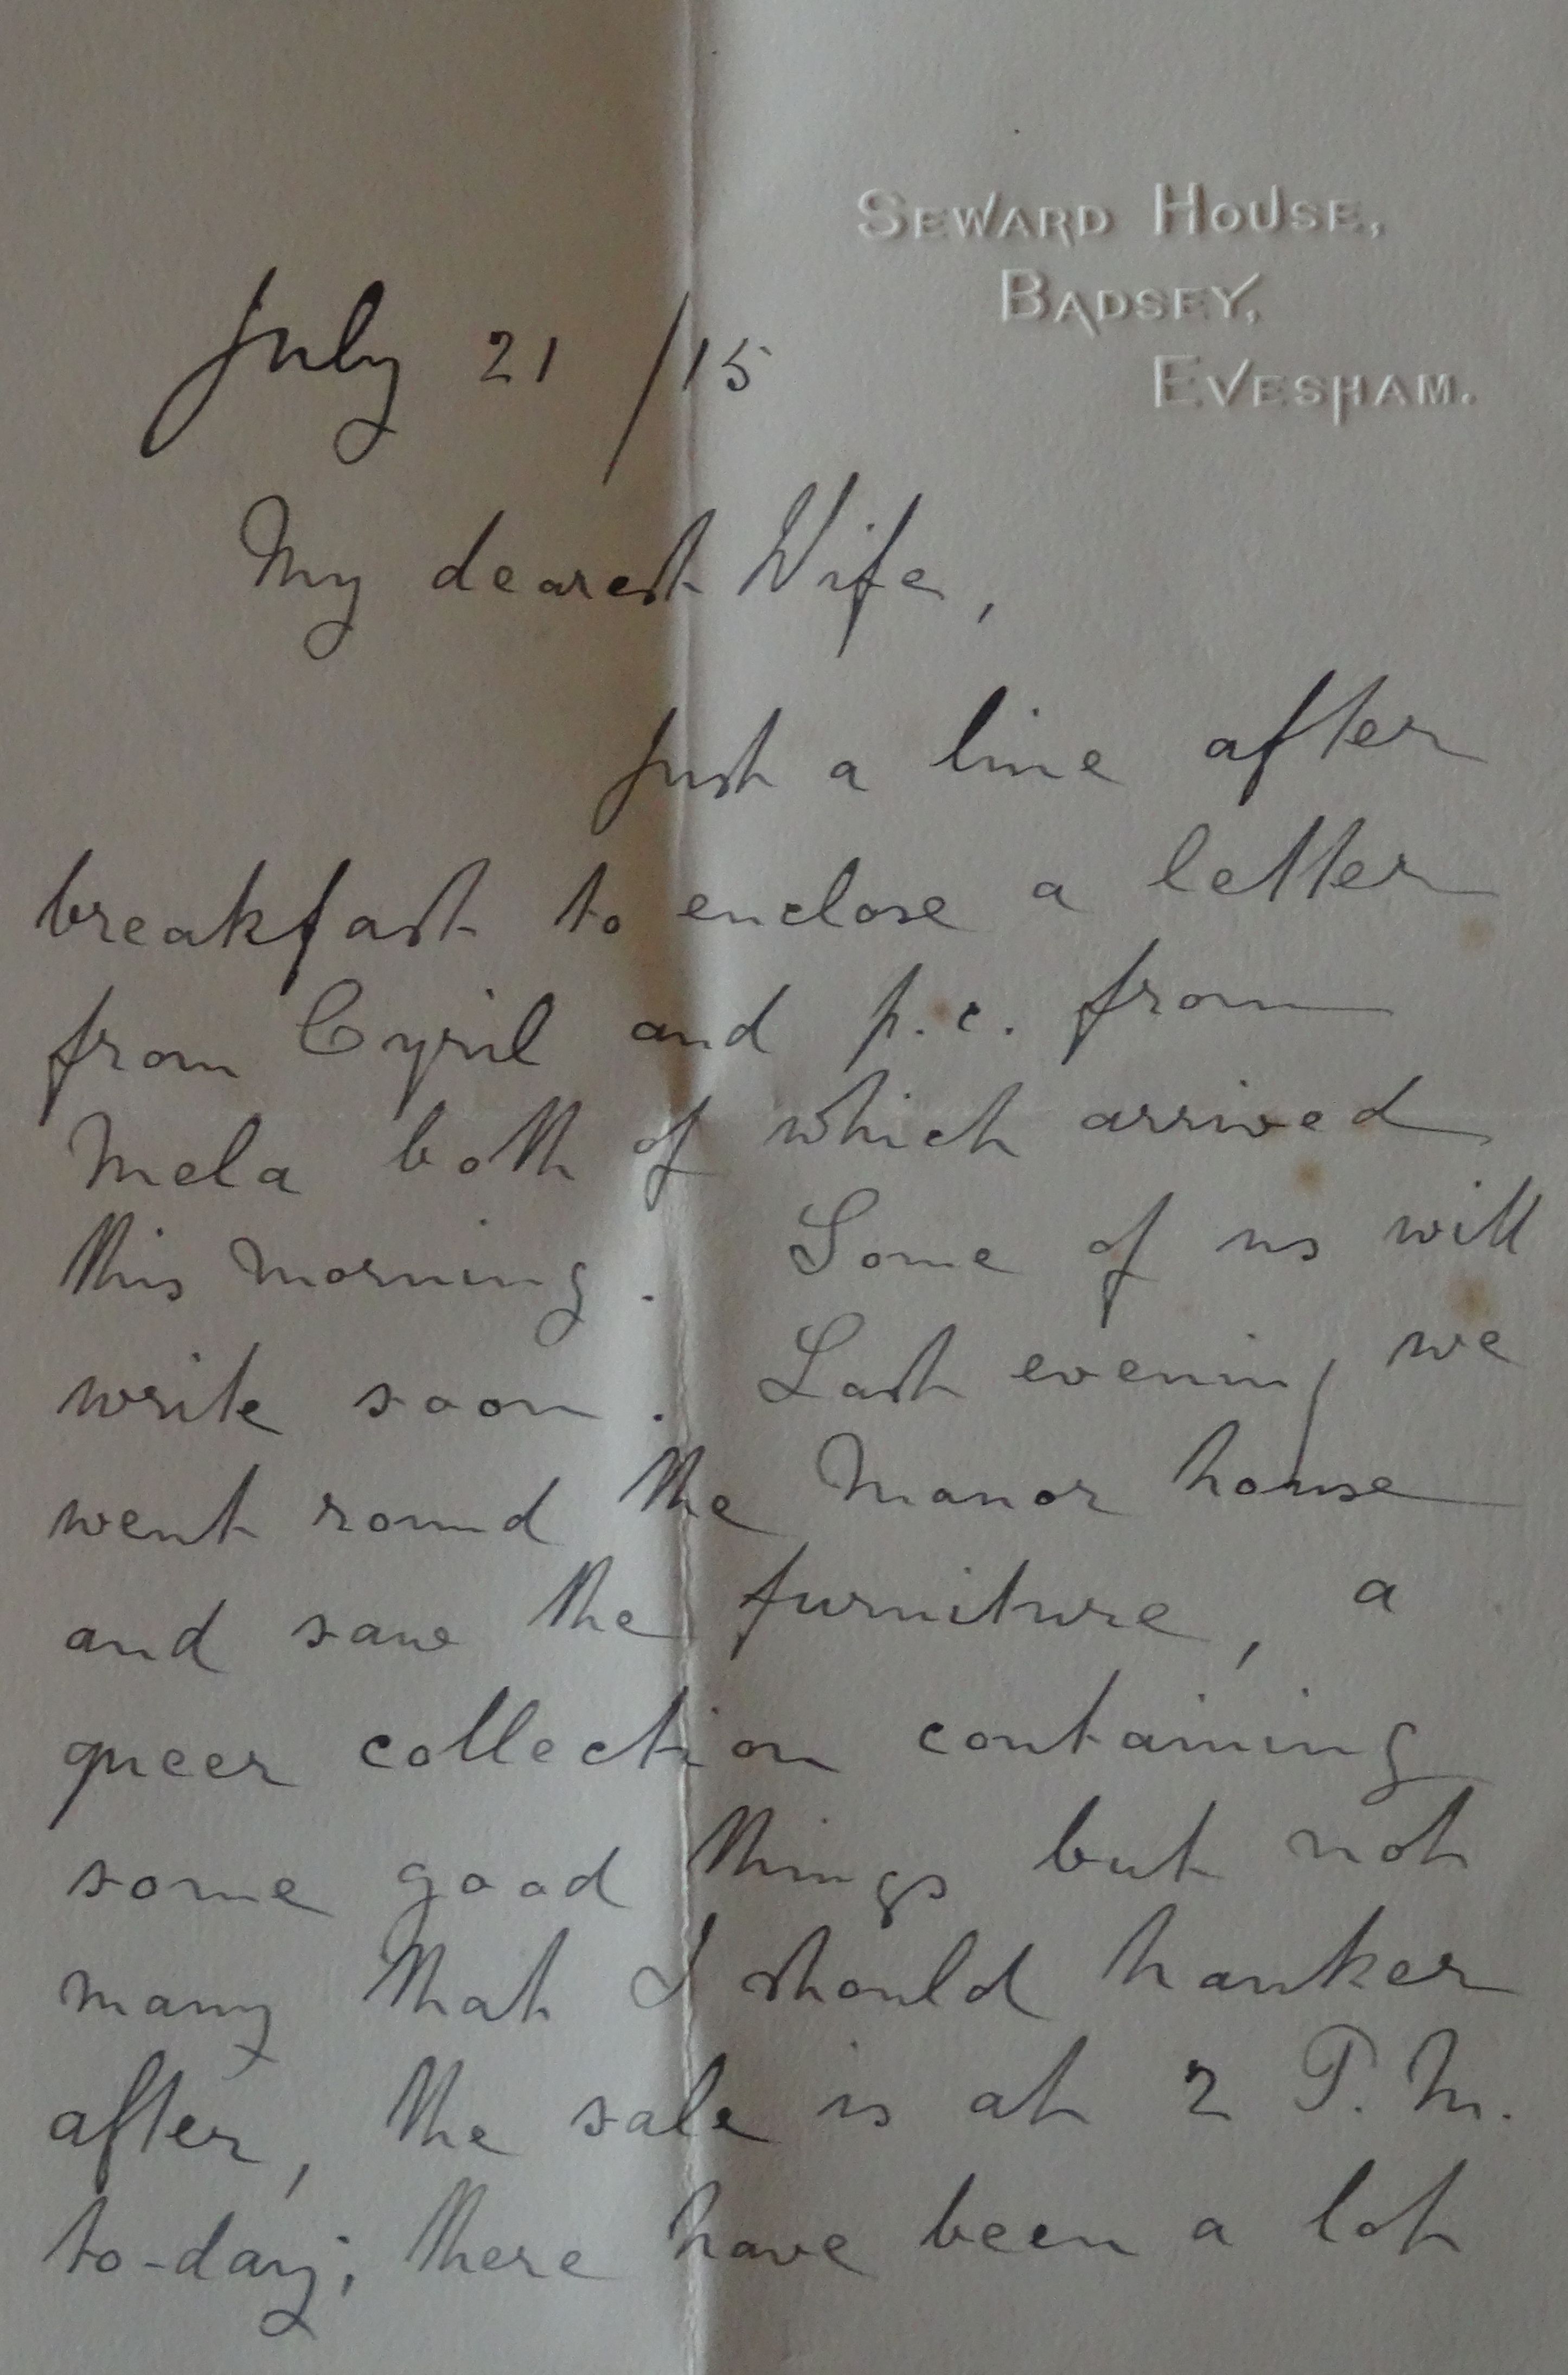 SEWARD HOUSE,
BADSEY,
EVESHAM.
July 21 /15
My dearest Wife,
Just a line after
breakfast to enclose a letter
from Cyril and p.c. from
Mela both of which arrived
this morning. Some of us will
write soon. Last evening we
went round the Manor house
and saw the furniture, a
queer collection containing
some good things but not
many that I should hanker
after, the sale is at 2 P.M.
to-day; there have been a lot